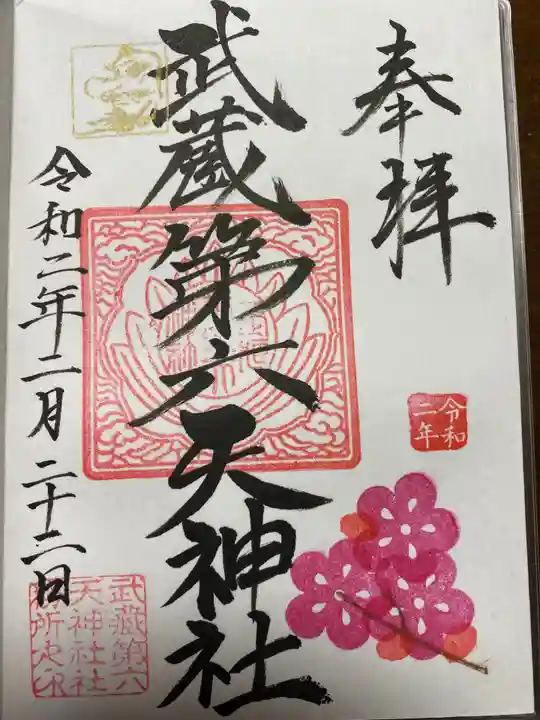 奉拝
令和
二年
武蔵第六天神社
令和二年二月二十二日
武蔵第六
天神社社